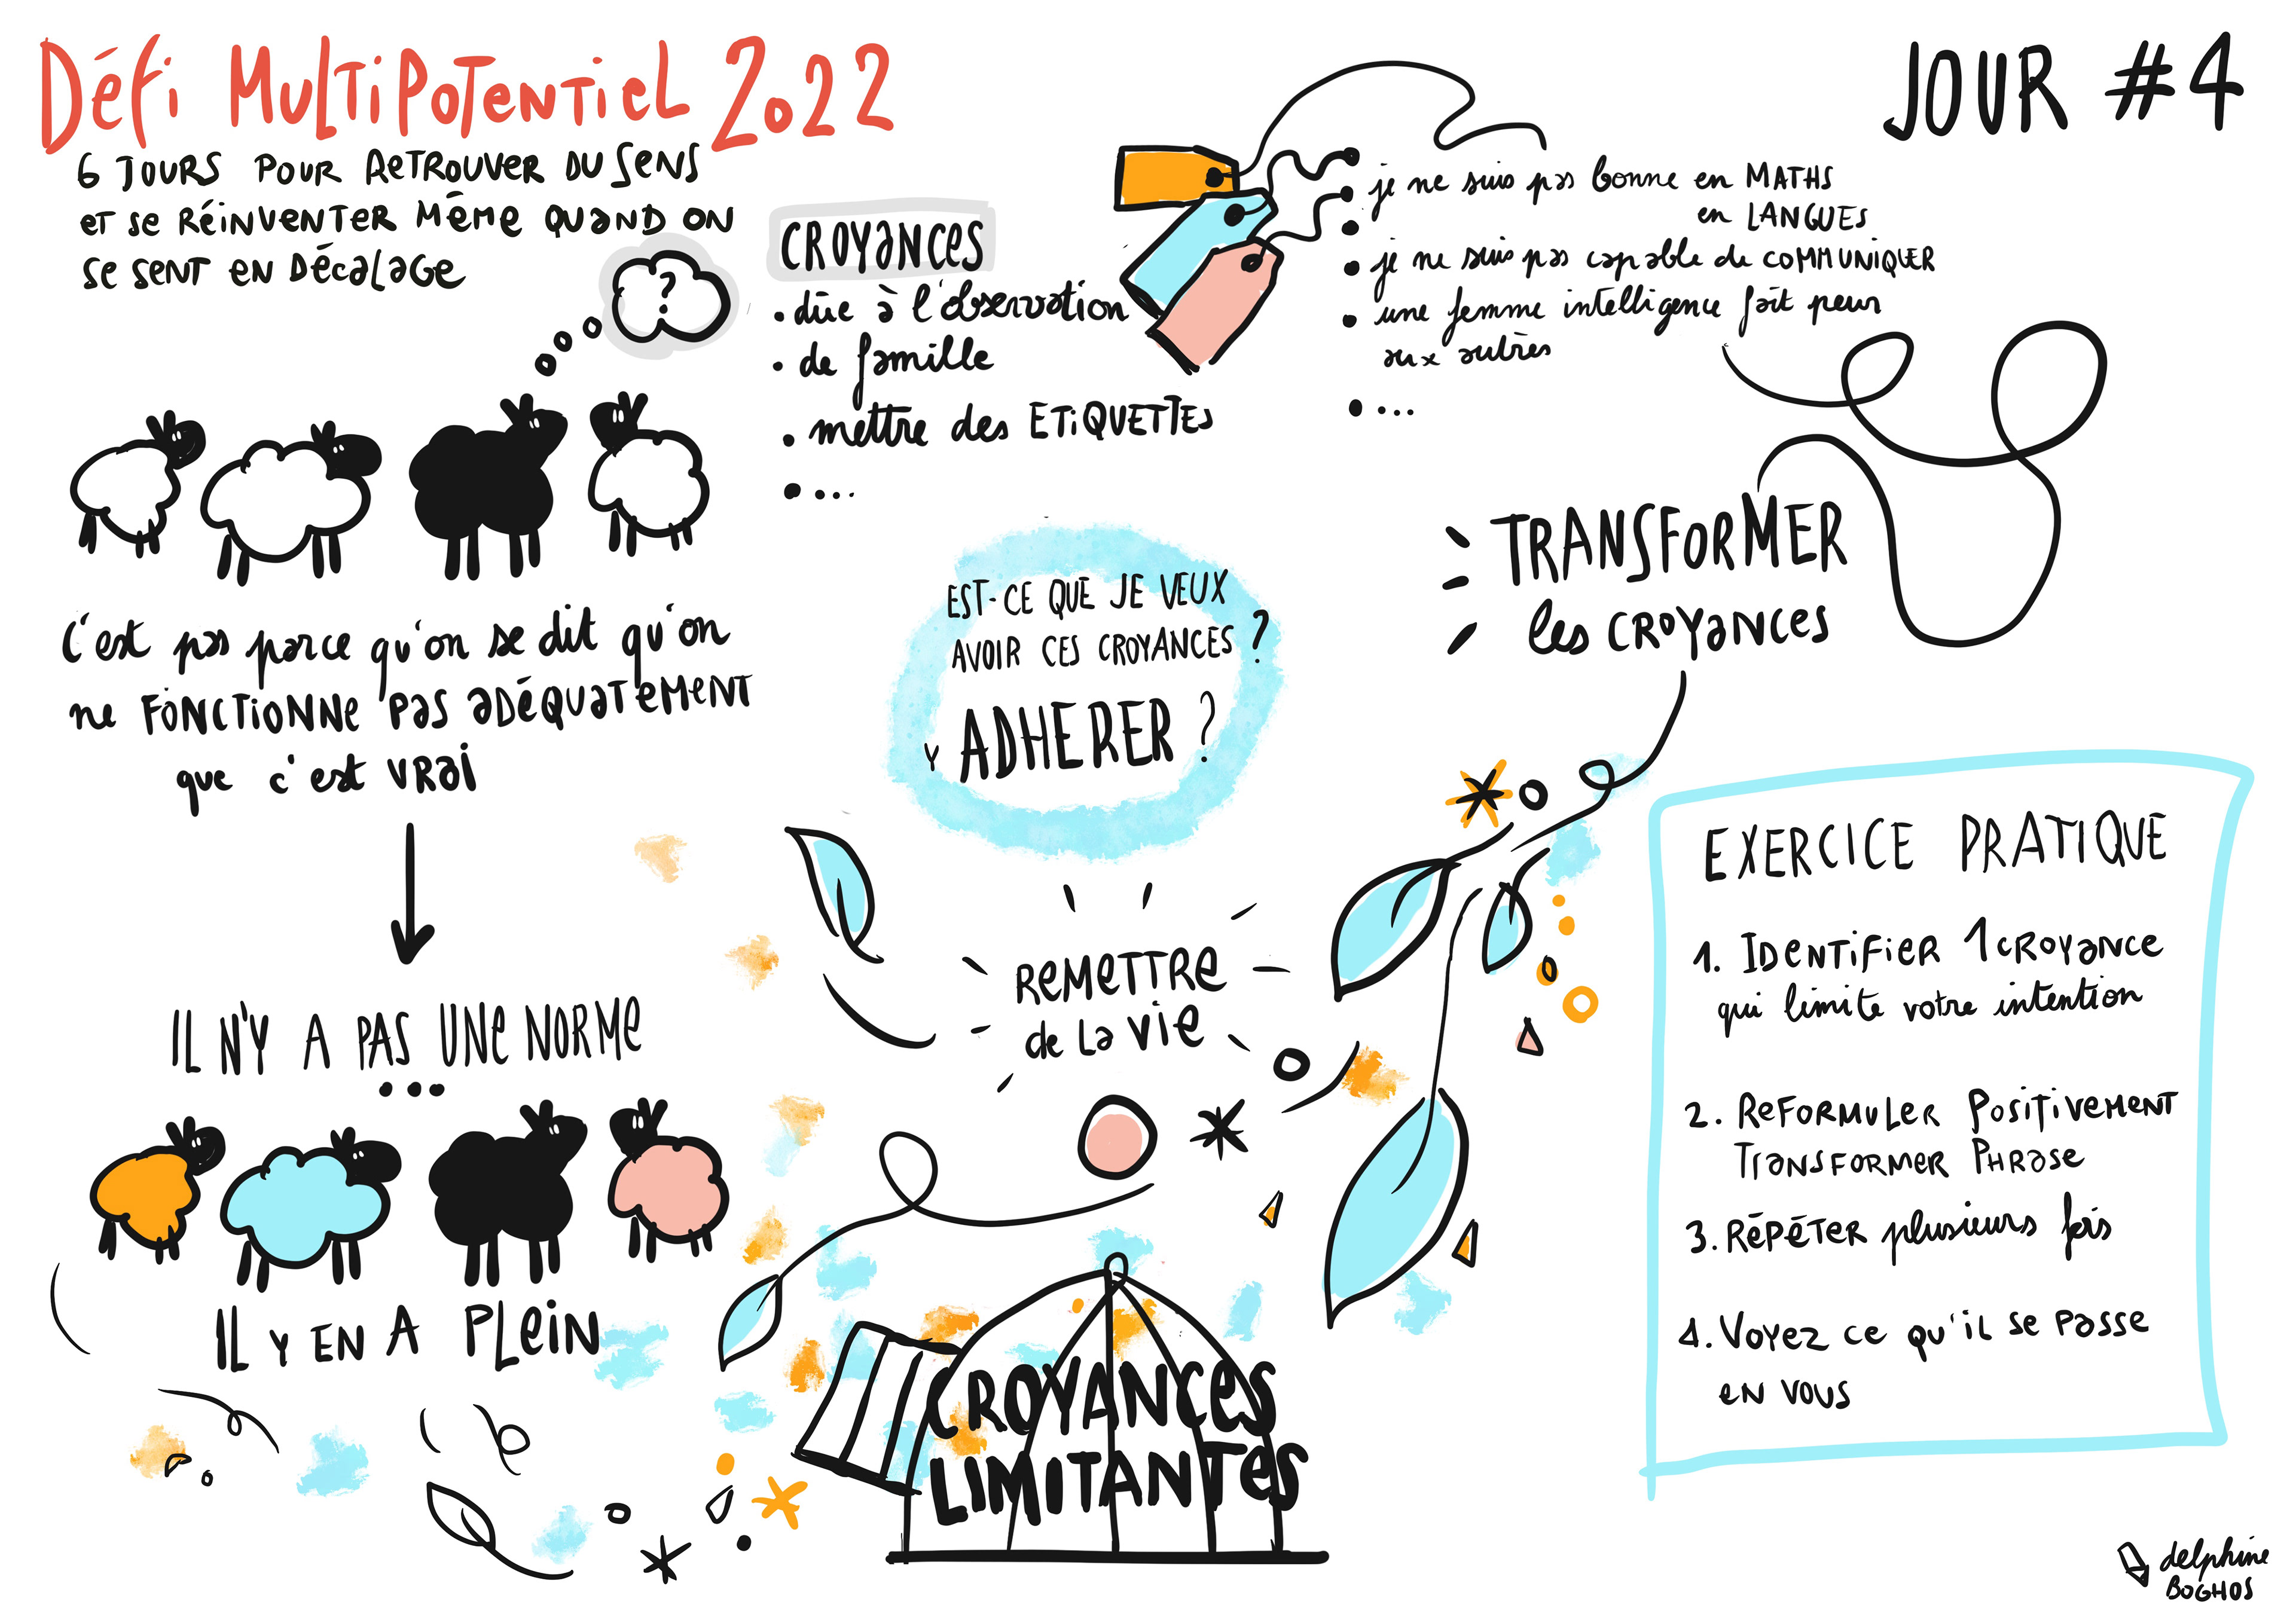 Défi MultiPotentiel 2022
6 jours pour retrouver du sens
et se réinventer même quand on
se sent en décalage
JOUR #4
?
CROYANCES
• dûe à l'observation
• de famille
• mettre des ETIQUETTES
• ...
• je ne suis pas bonne en MATHS
en LANGUES
• je ne suis pas capable de COMMUNIQUER
• une femme intelligence fait peur
aux autres
• ...
C'est pas parce qu'on se dit qu'on
ne FONCTIONNE PAS ADÉQUATEMENT
que c'est VRAI
EST-CE QUE JE VEUX
AVOIR CES CROYANCES ?
Y ADHERER ?
TRANSFORMER
les CROYANCES
IL N'Y A PAS UNE NORME
...
IL Y EN A PLEIN
REMETTRE
de la vie
CROYANCES
LIMITANTES
EXERCICE PRATIQUE
1. IDENTIFIER 1 CROYANCE
qui limite votre intention
2. REFORMULER POSITIVEMENT
TRANSFORMER PHRASE
3. RÉPÉTER plusieurs fois
4. VOYEZ CE QU'IL SE PASSE
EN VOUS
delphine
BOGHOS